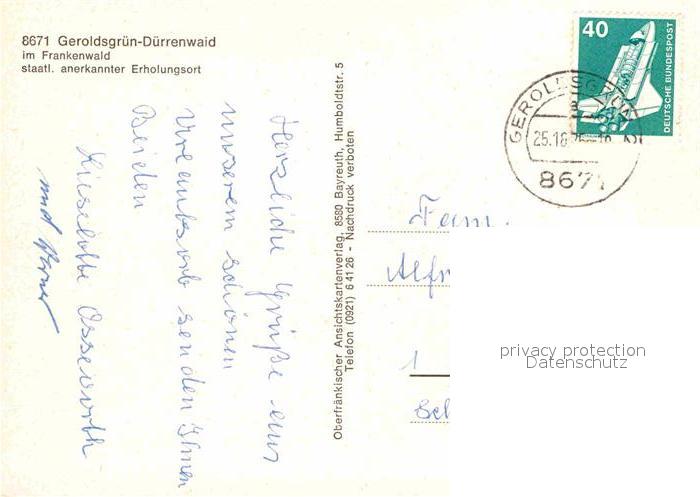 8671 Geroldsgrün-Dürrenwaid
im Frankenwald
staatl. anerkannter Erholungsort
Herzliche Grüße aus
unserem schönen
Urlaubsort senden Ihnen
Beiden
Lieselotte
und
Oberfränkischer Ansichtskartenverlag, 8580 Bayreuth, Humboldtstr. 5
Telefon (0921) 6 41 26 - Nachdruck verboten
40
DEUTSCHE BUNDESPOST
GEROLDSGRÜN
8671
Fam.
Alfr
1
privacy protection
Datenschutz